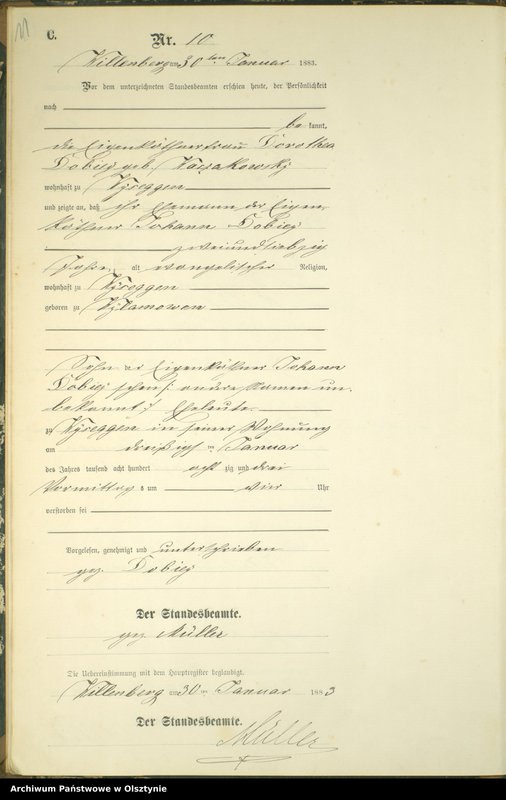 11
C.
Nr. 10
Willenberg am 30 ten Januar 1883.
Vor dem unterzeichneten Standesbeamten erschien heute, der Persönlichkeit
nach
be kannt,
die Eigenkäthnerfrau Dorothea
Dobiej geb.
wohnhaft zu
und zeigte an, daß ihr Ehemann, der Eigen,
käthner Johann Dobiej
zweiundsiebzig
Jahre alt evangelischer Religion,
wohnhaft zu
geboren zu
Sohn der Eigenkäthner Johann
Dobiej schen /: andere Namen un,
bekannt :/ Eheleute
zu in seiner Wohnung
am dreißigsten Januar
des Jahres tausend acht hundert acht zig und drei
Vormittag s um vier Uhr
verstorben sei
Vorgelesen, genehmigt und unterschrieben
gez. Dobiej
Der Standesbeamte.
gez. Müller
Die Uebereinstimmung mit dem Hauptregister beglaubigt.
Willenberg am 30 ten Januar 1883
Der Standesbeamte.
Müller
Archiwum Państwowe w Olsztynie